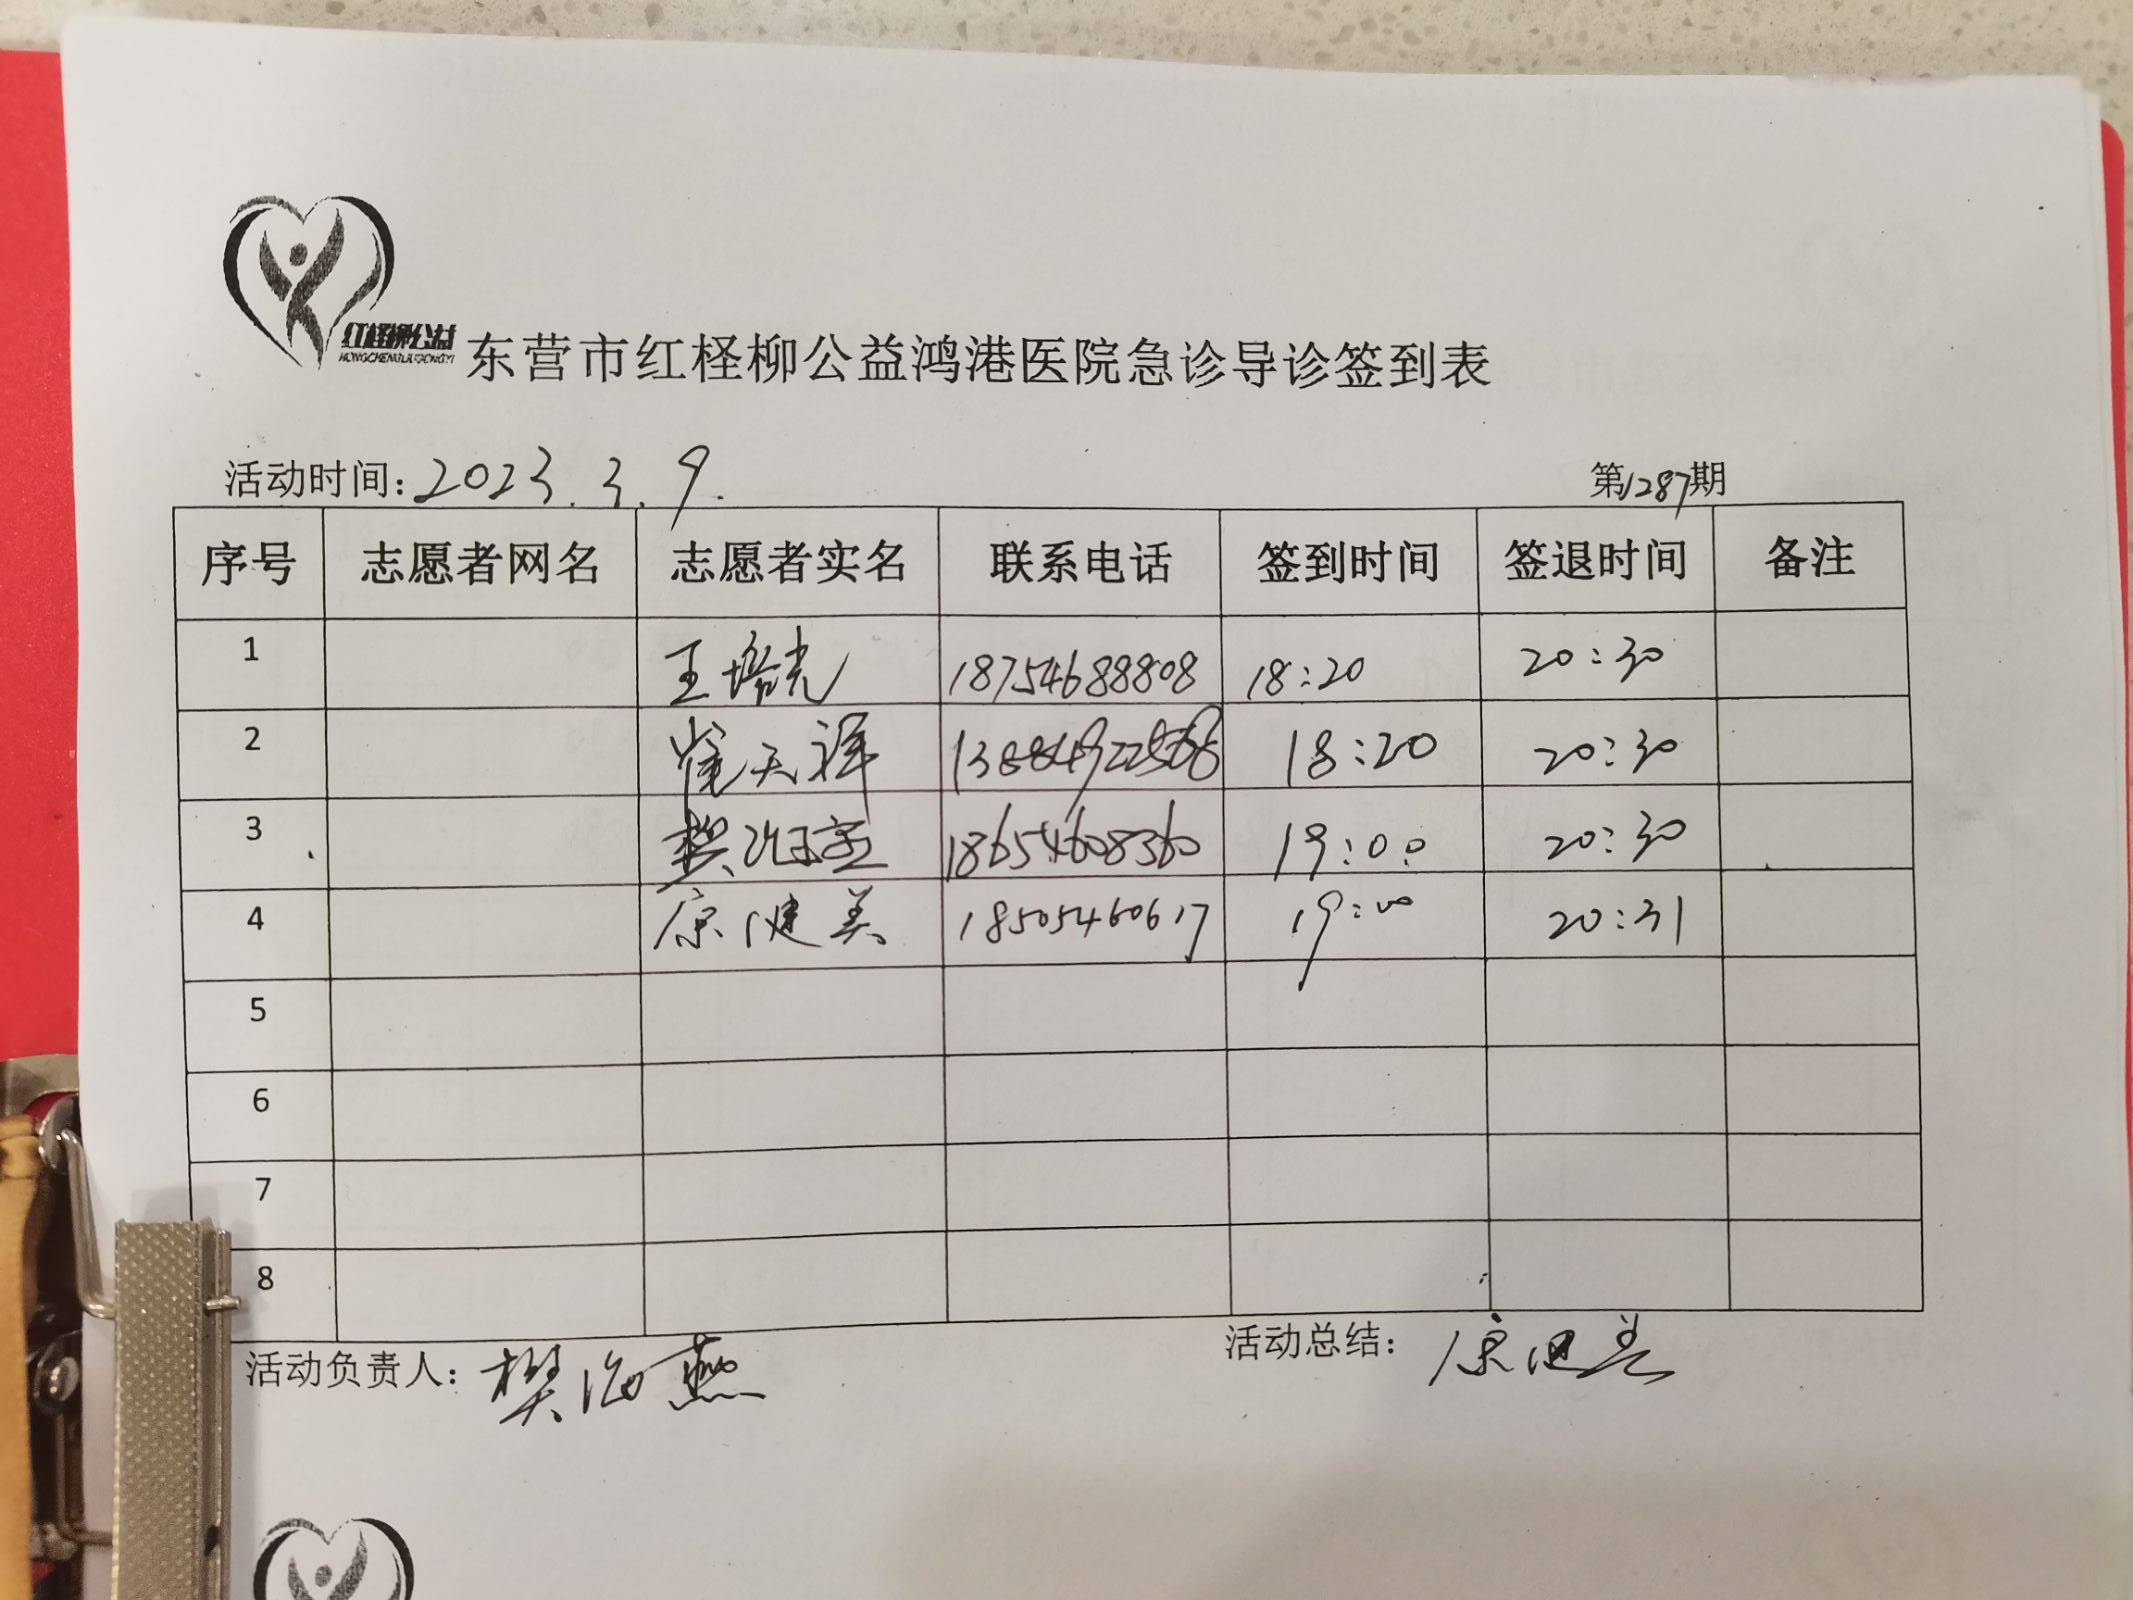 红柽柳公益
HONGCHENGLIUGONGYI
东营市红柽柳公益鸿港医院急诊导诊签到表
活动时间：2023.3.9.
第1287期
序号 志愿者网名 志愿者实名 联系电话 签到时间 签退时间 备注
1 王培光 18754688808 18:20 20:30
2 崔天祥 18:20 20:30
3 18654608360 19:00 20:30
4 康健美 18505460617 19:00 20:31
5
6
7
8
活动负责人：樊海燕
活动总结：康健美